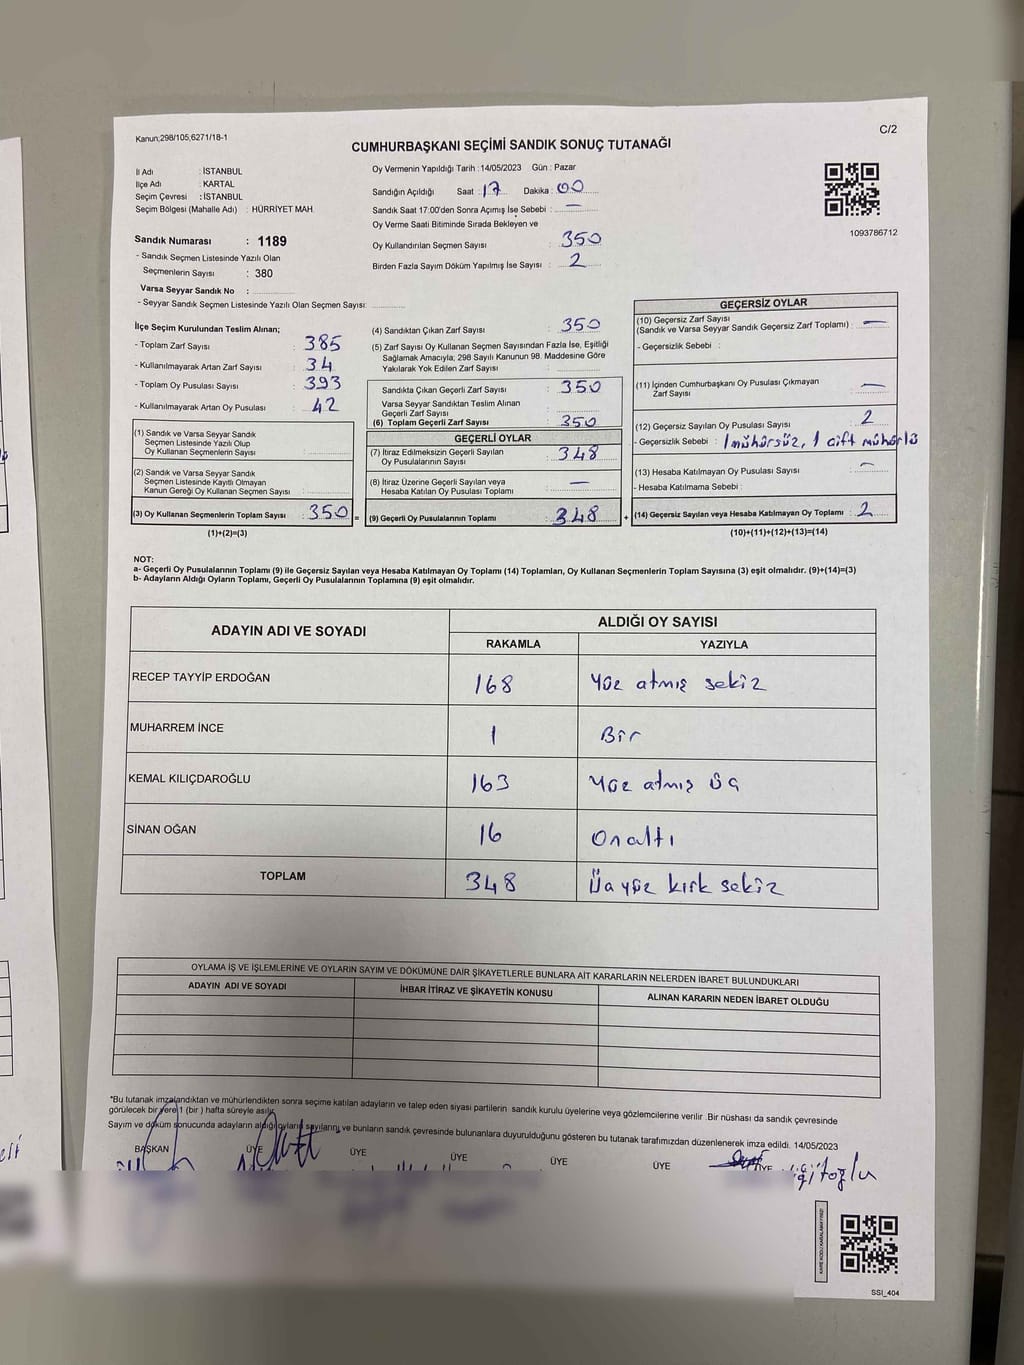 Kanun;298/105,6271/18-1
C/2
CUMHURBAŞKANI SEÇİMİ SANDIK SONUÇ TUTANAĞI
İl Adı : İSTANBUL
İlçe Adı : KARTAL
Seçim Çevresi : İSTANBUL
Seçim Bölgesi (Mahalle Adı) : HÜRRİYET MAH.
Sandık Numarası : 1189
- Sandık Seçmen Listesinde Yazılı Olan
Seçmenlerin Sayısı : 380
Varsa Seyyar Sandık No :
- Seyyar Sandık Seçmen Listesinde Yazılı Olan Seçmen Sayısı:
Oy Vermenin Yapıldığı Tarih : 14/05/2023 Gün : Pazar
Sandığın Açıldığı Saat : 17 Dakika : 00
Sandık Saat 17:00'den Sonra Açımış İse Sebebi : —
Oy Verme Saati Bitiminde Sırada Bekleyen ve
Oy Kullandırılan Seçmen Sayısı : 350
Birden Fazla Sayım Döküm Yapılmış İse Sayısı : 2
1093786712
İlçe Seçim Kurulundan Teslim Alınan;
- Toplam Zarf Sayısı : 385
- Kullanılmayarak Artan Zarf Sayısı : 34
- Toplam Oy Pusulası Sayısı : 393
- Kullanılmayarak Artan Oy Pusulası : 42
(1) Sandık ve Varsa Seyyar Sandık
Seçmen Listesinde Yazılı Olup
Oy Kullanan Seçmenlerin Sayısı :
(2) Sandık ve Varsa Seyyar Sandık
Seçmen Listesinde Kayıtlı Olmayan
Kanun Gereği Oy Kullanan Seçmen Sayısı :
(3) Oy Kullanan Seçmenlerin Toplam Sayısı : 350 =
(1)+(2)=(3)
(4) Sandıktan Çıkan Zarf Sayısı : 350
(5) Zarf Sayısı Oy Kullanan Seçmen Sayısından Fazla İse, Eşitliği
Sağlamak Amacıyla; 298 Sayılı Kanunun 98. Maddesine Göre
Yakılarak Yok Edilen Zarf Sayısı :
Sandıkta Çıkan Geçerli Zarf Sayısı : 350
Varsa Seyyar Sandıktan Teslim Alınan
Geçerli Zarf Sayısı :
(6) Toplam Geçerli Zarf Sayısı : 350
GEÇERLİ OYLAR
(7) İtiraz Edilmeksizin Geçerli Sayılan
Oy Pusulalarının Sayısı : 348
(8) İtiraz Üzerine Geçerli Sayılan veya
Hesaba Katılan Oy Pusulası Toplamı : —
(9) Geçerli Oy Pusulalarının Toplamı : 348 +
GEÇERSİZ OYLAR
(10) Geçersiz Zarf Sayısı
(Sandık ve Varsa Seyyar Sandık Geçersiz Zarf Toplamı) : —
- Geçersizlik Sebebi :
(11) İçinden Cumhurbaşkanı Oy Pusulası Çıkmayan
Zarf Sayısı : —
(12) Geçersiz Sayılan Oy Pusulası Sayısı : 2
- Geçersizlik Sebebi : 1 mühürsüz, 1 çift mühürlü
(13) Hesaba Katılmayan Oy Pusulası Sayısı : —
- Hesaba Katılmama Sebebi :
(14) Geçersiz Sayılan veya Hesaba Katılmayan Oy Toplamı : 2
(10)+(11)+(12)+(13)=(14)
NOT:
a- Geçerli Oy Pusulalarının Toplamı (9) ile Geçersiz Sayılan veya Hesaba Katılmayan Oy Toplamı (14) Toplamları, Oy Kullanan Seçmenlerin Toplam Sayısına (3) eşit olmalıdır. (9)+(14)=(3)
b- Adayların Aldığı Oyların Toplamı, Geçerli Oy Pusulalarının Toplamına (9) eşit olmalıdır.
ADAYIN ADI VE SOYADI
ALDIĞI OY SAYISI
RAKAMLA YAZIYLA
RECEP TAYYİP ERDOĞAN 168 Yüz atmış sekiz
MUHARREM İNCE 1 Bir
KEMAL KILIÇDAROĞLU 163 Yüz atmış üç
SİNAN OĞAN 16 Onaltı
TOPLAM 348 Üç yüz kırk sekiz
OYLAMA İŞ VE İŞLEMLERİNE VE OYLARIN SAYIM VE DÖKÜMÜNE DAİR ŞİKAYETLERLE BUNLARA AİT KARARLARIN NELERDEN İBARET BULUNDUKLARI
ADAYIN ADI VE SOYADI İHBAR İTİRAZ VE ŞİKAYETİN KONUSU ALINAN KARARIN NEDEN İBARET OLDUĞU
*Bu tutanak imzalandıktan ve mühürlendikten sonra seçime katılan adayların ve talep eden siyasi partilerin sandık kurulu üyelerine veya gözlemcilerine verilir .Bir nüshası da sandık çevresinde
görülecek bir yere 1 (bir ) hafta süreyle asılır.
Sayım ve döküm sonucunda adayların aldığı oyların sayılarını ve bunların sandık çevresinde bulunanlara duyurulduğunu gösteren bu tutanak tarafımızdan düzenlenerek imza edildi. 14/05/2023
BAŞKAN ÜYE ÜYE ÜYE ÜYE ÜYE ÜYE
SSI_404